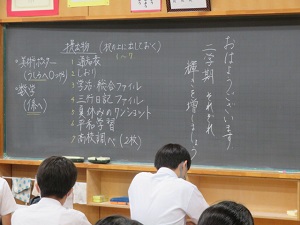 おはようございます
二学期 それぞれ
輝きを増しましょう
提出物 (机の上に出しておく)
1〜7
1 通知表
2 しおり
3 学活・総合ファイル
4 三行日記ファイル
5 夏休みのワンショット
6 平和学習
7 高校調べ(2枚)
・美術ポスター
(うしろへ
・数学
(係へ)